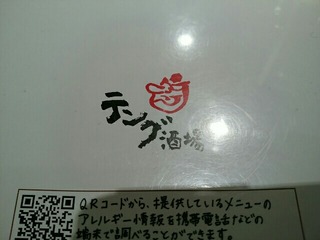 テング酒場
QRコードから、提供しているメニューの
アレルギー情報を携帯電話などの
端末で調べることができます。